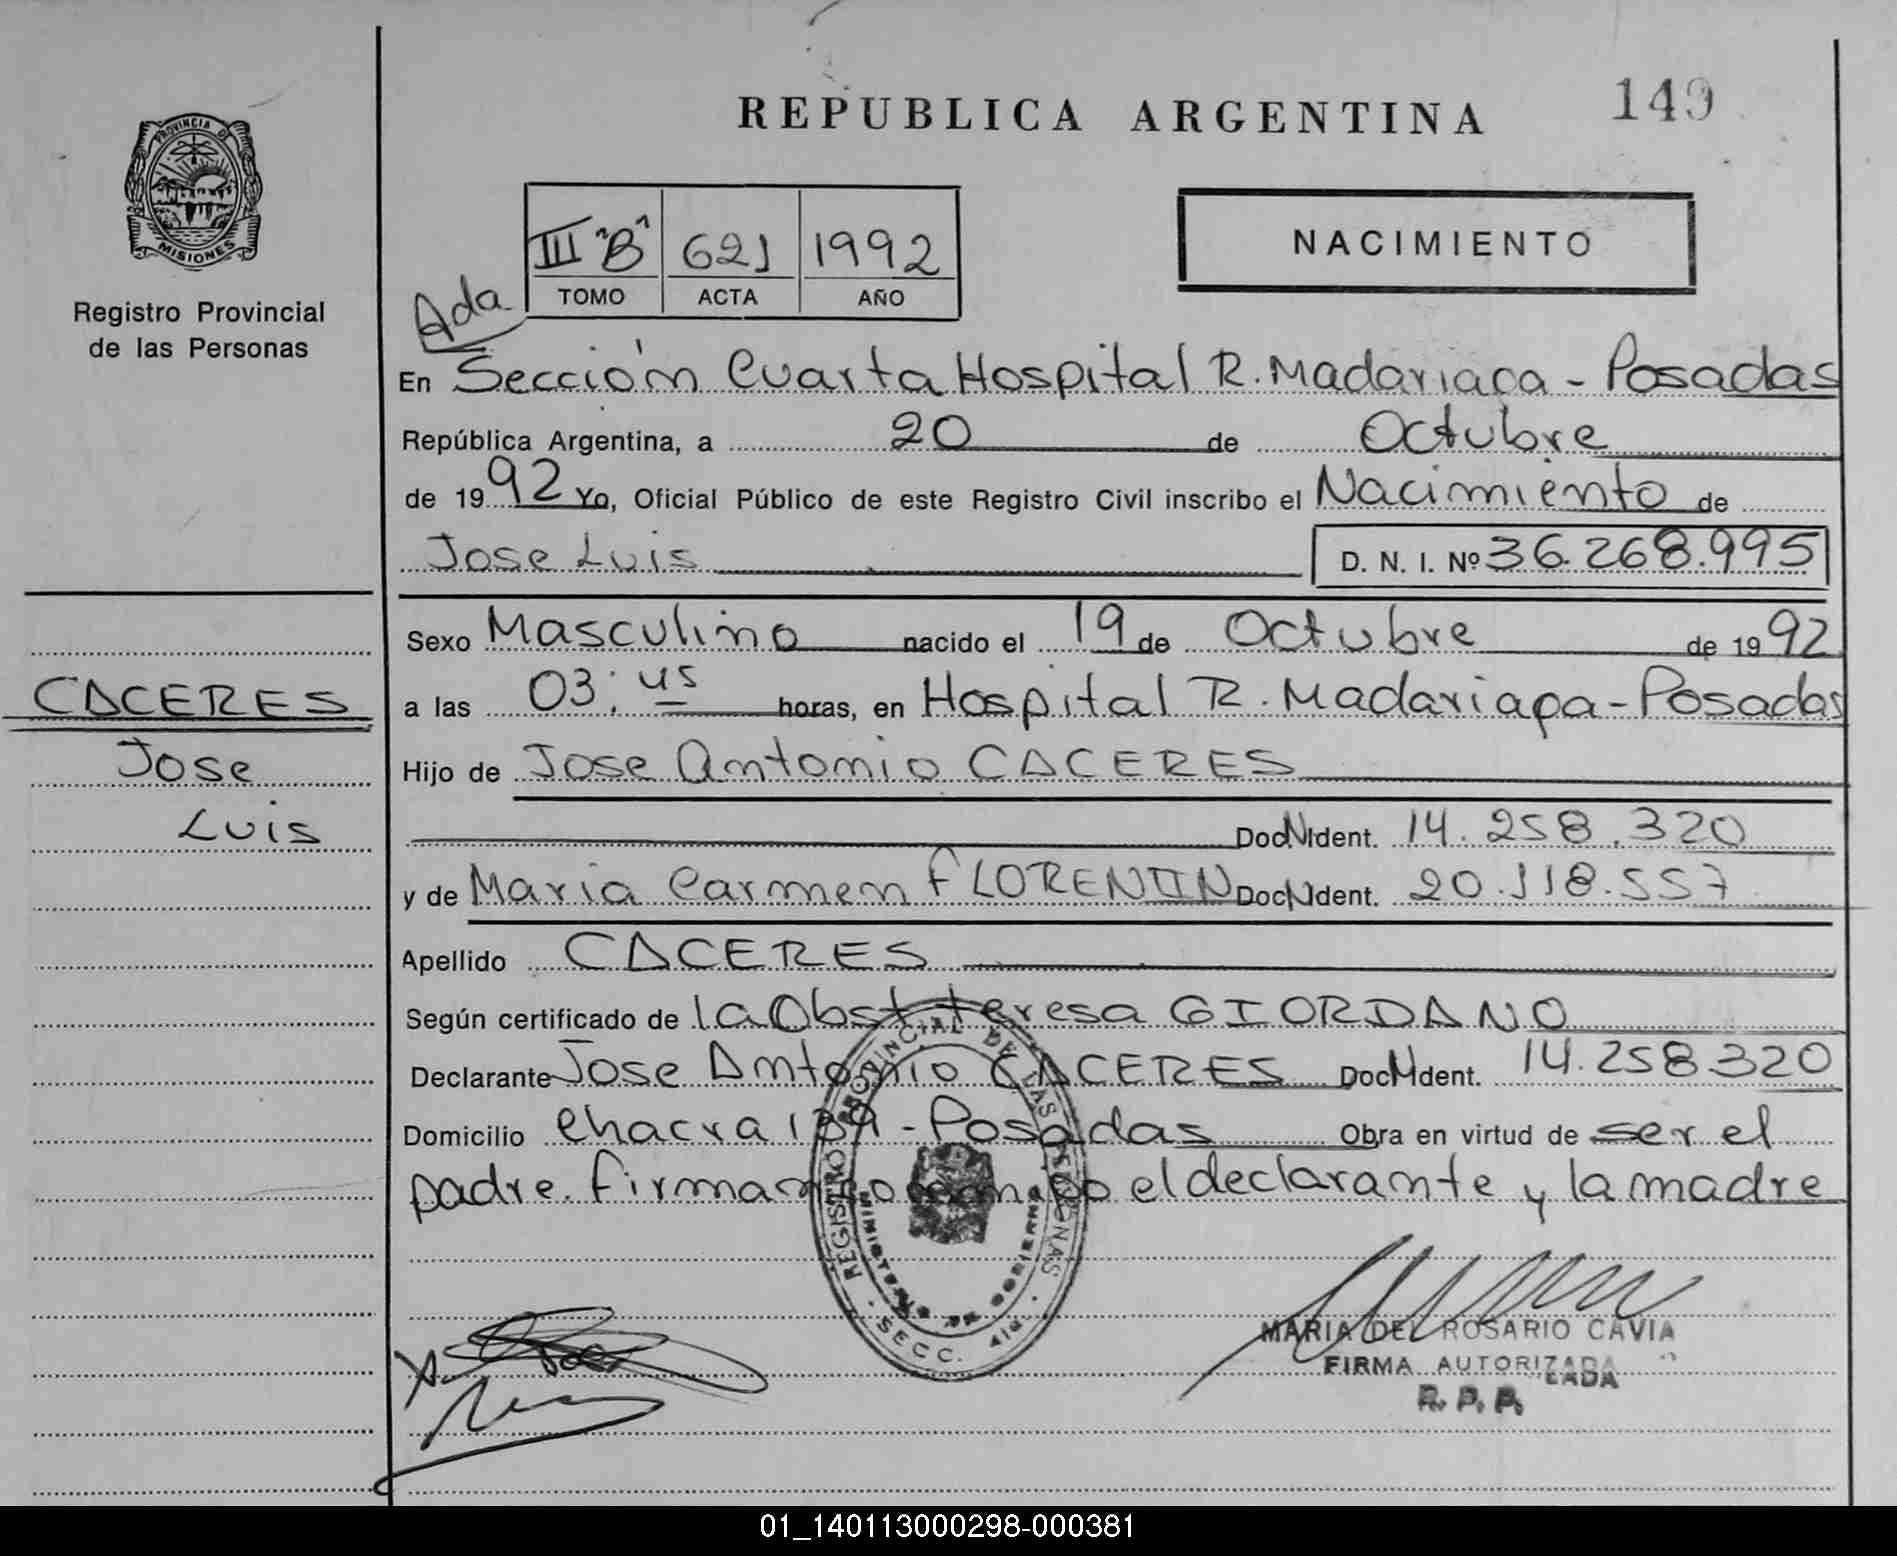 REPUBLICA ARGENTINA
149
PROVINCIA DE
MISIONES
Registro Provincial
de las Personas
III "B" 621 1992
TOMO ACTA AÑO
NACIMIENTO
Ada
En Sección Cuarta Hospital R. Madariaga - Posadas
República Argentina, a 20 de Octubre
de 1992 Yo, Oficial Público de este Registro Civil inscribo el Nacimiento de
Jose Luis D. N. I. Nº 36.268.995
Sexo Masculino nacido el 19 de Octubre de 1992
CACERES
a las 03:45 horas, en Hospital R. Madariaga - Posadas
Jose
Hijo de Jose Antonio CACERES
Luis
Doc N Ident. 14.258.320
y de Maria Carmen FLORENTIN Doc N Ident. 20.118.557
Apellido CACERES
Según certificado de la Obst teresa GIORDANO
Declarante Jose Antonio CACERES Doc N Ident. 14.258.320
Domicilio Chacra 139 - Posadas Obra en virtud de ser el
padre. Firman conmigo el declarante y la madre
REGISTRO PROVINCIAL DE LAS PERSONAS
MINISTERIO DE GOBIERNO
SECC. 4ta.
MARIA DEL ROSARIO CAVIA
FIRMA AUTORIZADA
R. P. P.
01_140113000298-000381